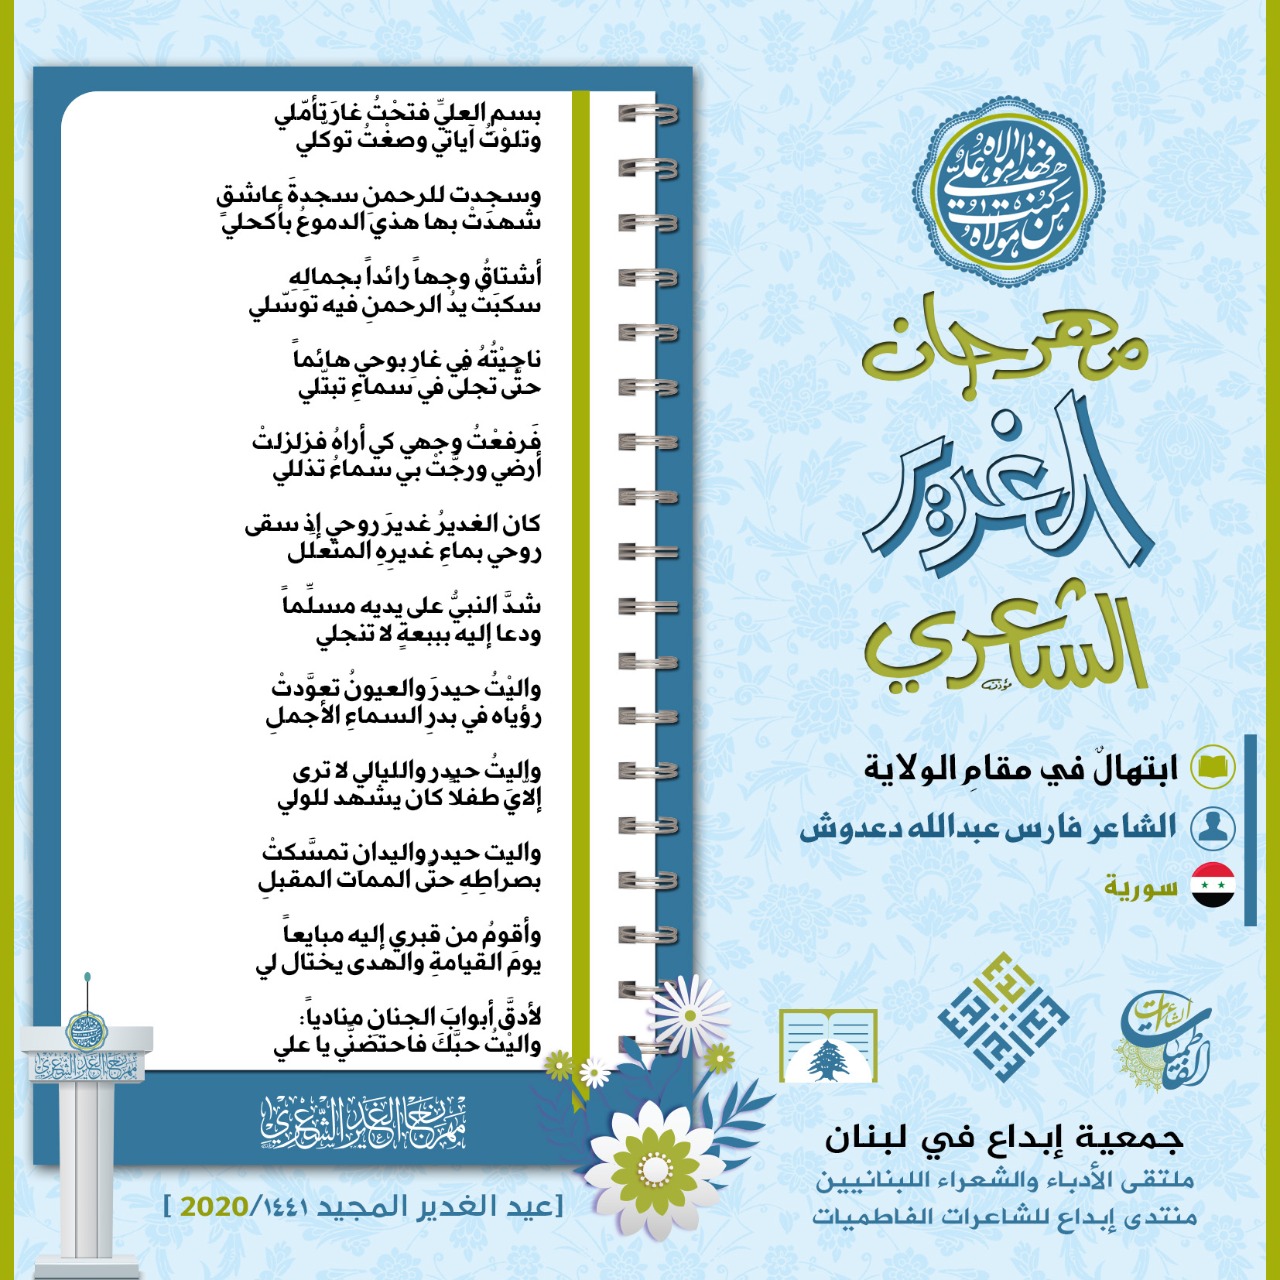 من كنت مولاه فهذا مولاه علي
مهرجان
الغدير
الشعري
ابتهالٌ في مقامِ الولاية
الشاعر فارس عبدالله دعدوش
سورية
بسمِ العليِّ فتحْتُ غارَ تأمّلي
وتلوْتُ آياتي وصغْتُ توكّلي
وسجدت للرحمنِ سجدةَ عاشقٍ
شهدَتْ بها هذيَ الدموعُ بأكحلي
أشتاقُ وجهاً رائداً بجمالِهِ
سكبَتْ يدُ الرحمنِ فيه توسّلي
ناجيْتُهُ في غارِ بوحي هائماً
حتَّى تجلَّى في سماءِ تبتّلي
فَرفعْتُ وجهي كي أراهُ فزلزلتْ
أرضي ورجَّتْ بي سماءُ تذللي
كان الغديرُ غديرَ روحي إذِ سقى
روحي بماءِ غديرِهِ المتعلّل
شدَّ النبيُّ على يديه مسلِّماً
ودعا إليه بببعةٍ لا تنجلي
واليْتُ حيدرَ والعيونُ تعوَّدتْ
رؤياه في بدرِ السماءِ الأجملِ
واليتُ حيدر والليالي لا ترى
إلّايَ طفلاً كان يشهد للولي
واليت حيدر واليدانِ تمسَّكتْ
بصراطِهِ حتَّى الممات المقبلِ
وأقومُ من قبري إليه مبايعاً
يومَ القيامةِ والهدى يختال لي
لأدقَّ أبوابَ الجنانِ منادياً:
واليْتُ حبَّكَ فاحتضنِّي يا علي
مهرجان الغدير الشعري
[عيد الغدير المجيد ١٤٤١/2020 ]
إبداع
الشاعرات
الفاطميات
جمعية إبداع في لبنان
ملتقى الأدباء والشعراء اللبنانيين
منتدى إبداع للشاعرات الفاطميات